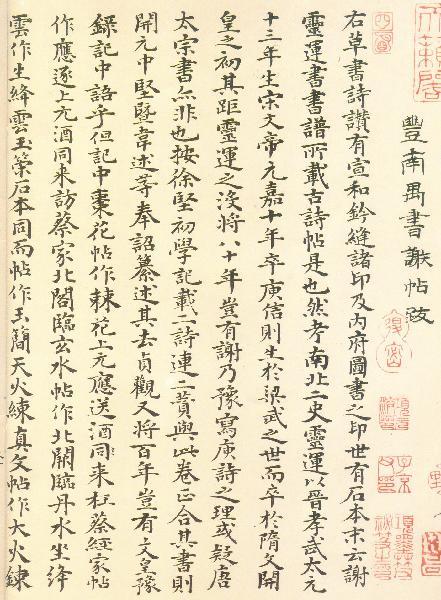 豐南禺書謝帖跋
右草書詩讚有宣和鈐縫諸印及內府圖書之印世有石本末云謝
靈運書書譜所載古詩帖是也然考南北二史靈運以晉孝武太元
十三年生宋文帝元嘉十年卒庾信則生於梁武之世而卒於隋文開
皇之初其距靈運之沒將八十年豈有謝乃豫寫庾詩之理或疑唐
太宗書亦非也按徐堅初學記載二詩連二贊與此卷正合其書則
開元中堅暨韋述等奉詔纂述其去貞觀又將百年豈有文皇豫
錄記中語乎但記中棗花帖作棘花上元應送酒同來在蔡經家帖
作應逐上元酒同來訪蔡家北閣臨玄水帖作北闕臨丹水坐絳
雲作生絳雲玉策石本同而帖作玉簡天火練真文帖作大火鍊